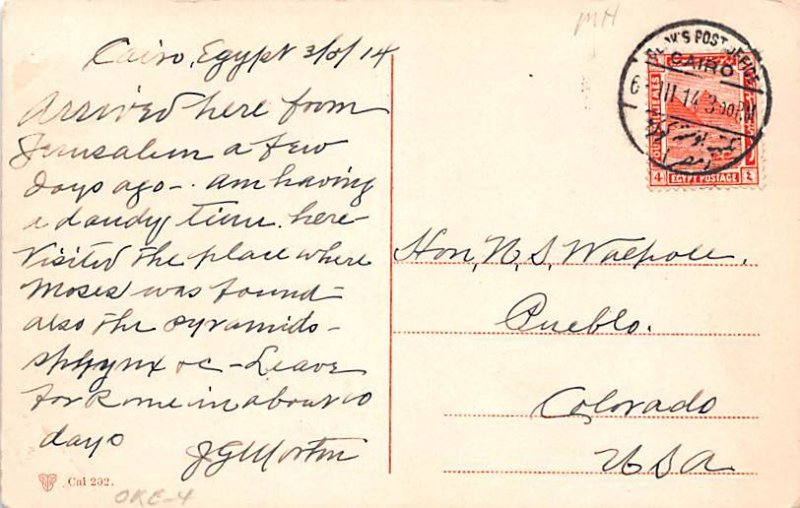 MH
Cairo, Egypt 3/6/14
Arrived here from
Jerusalem a few
days ago -. am having
a dandy time. here -
Visited the place where
Moses was found -
also the pyramids -
sphynx &c - Leave
for Rome in about 10
days
J G Morton
Cal 292.
OKE-4
POST OFFICE
CAIRO
6 III 14 3 00 PM
4 EGYPT POSTAGE 4
Hon, N, S, Walpole.
Pueblo.
Colorado
USA